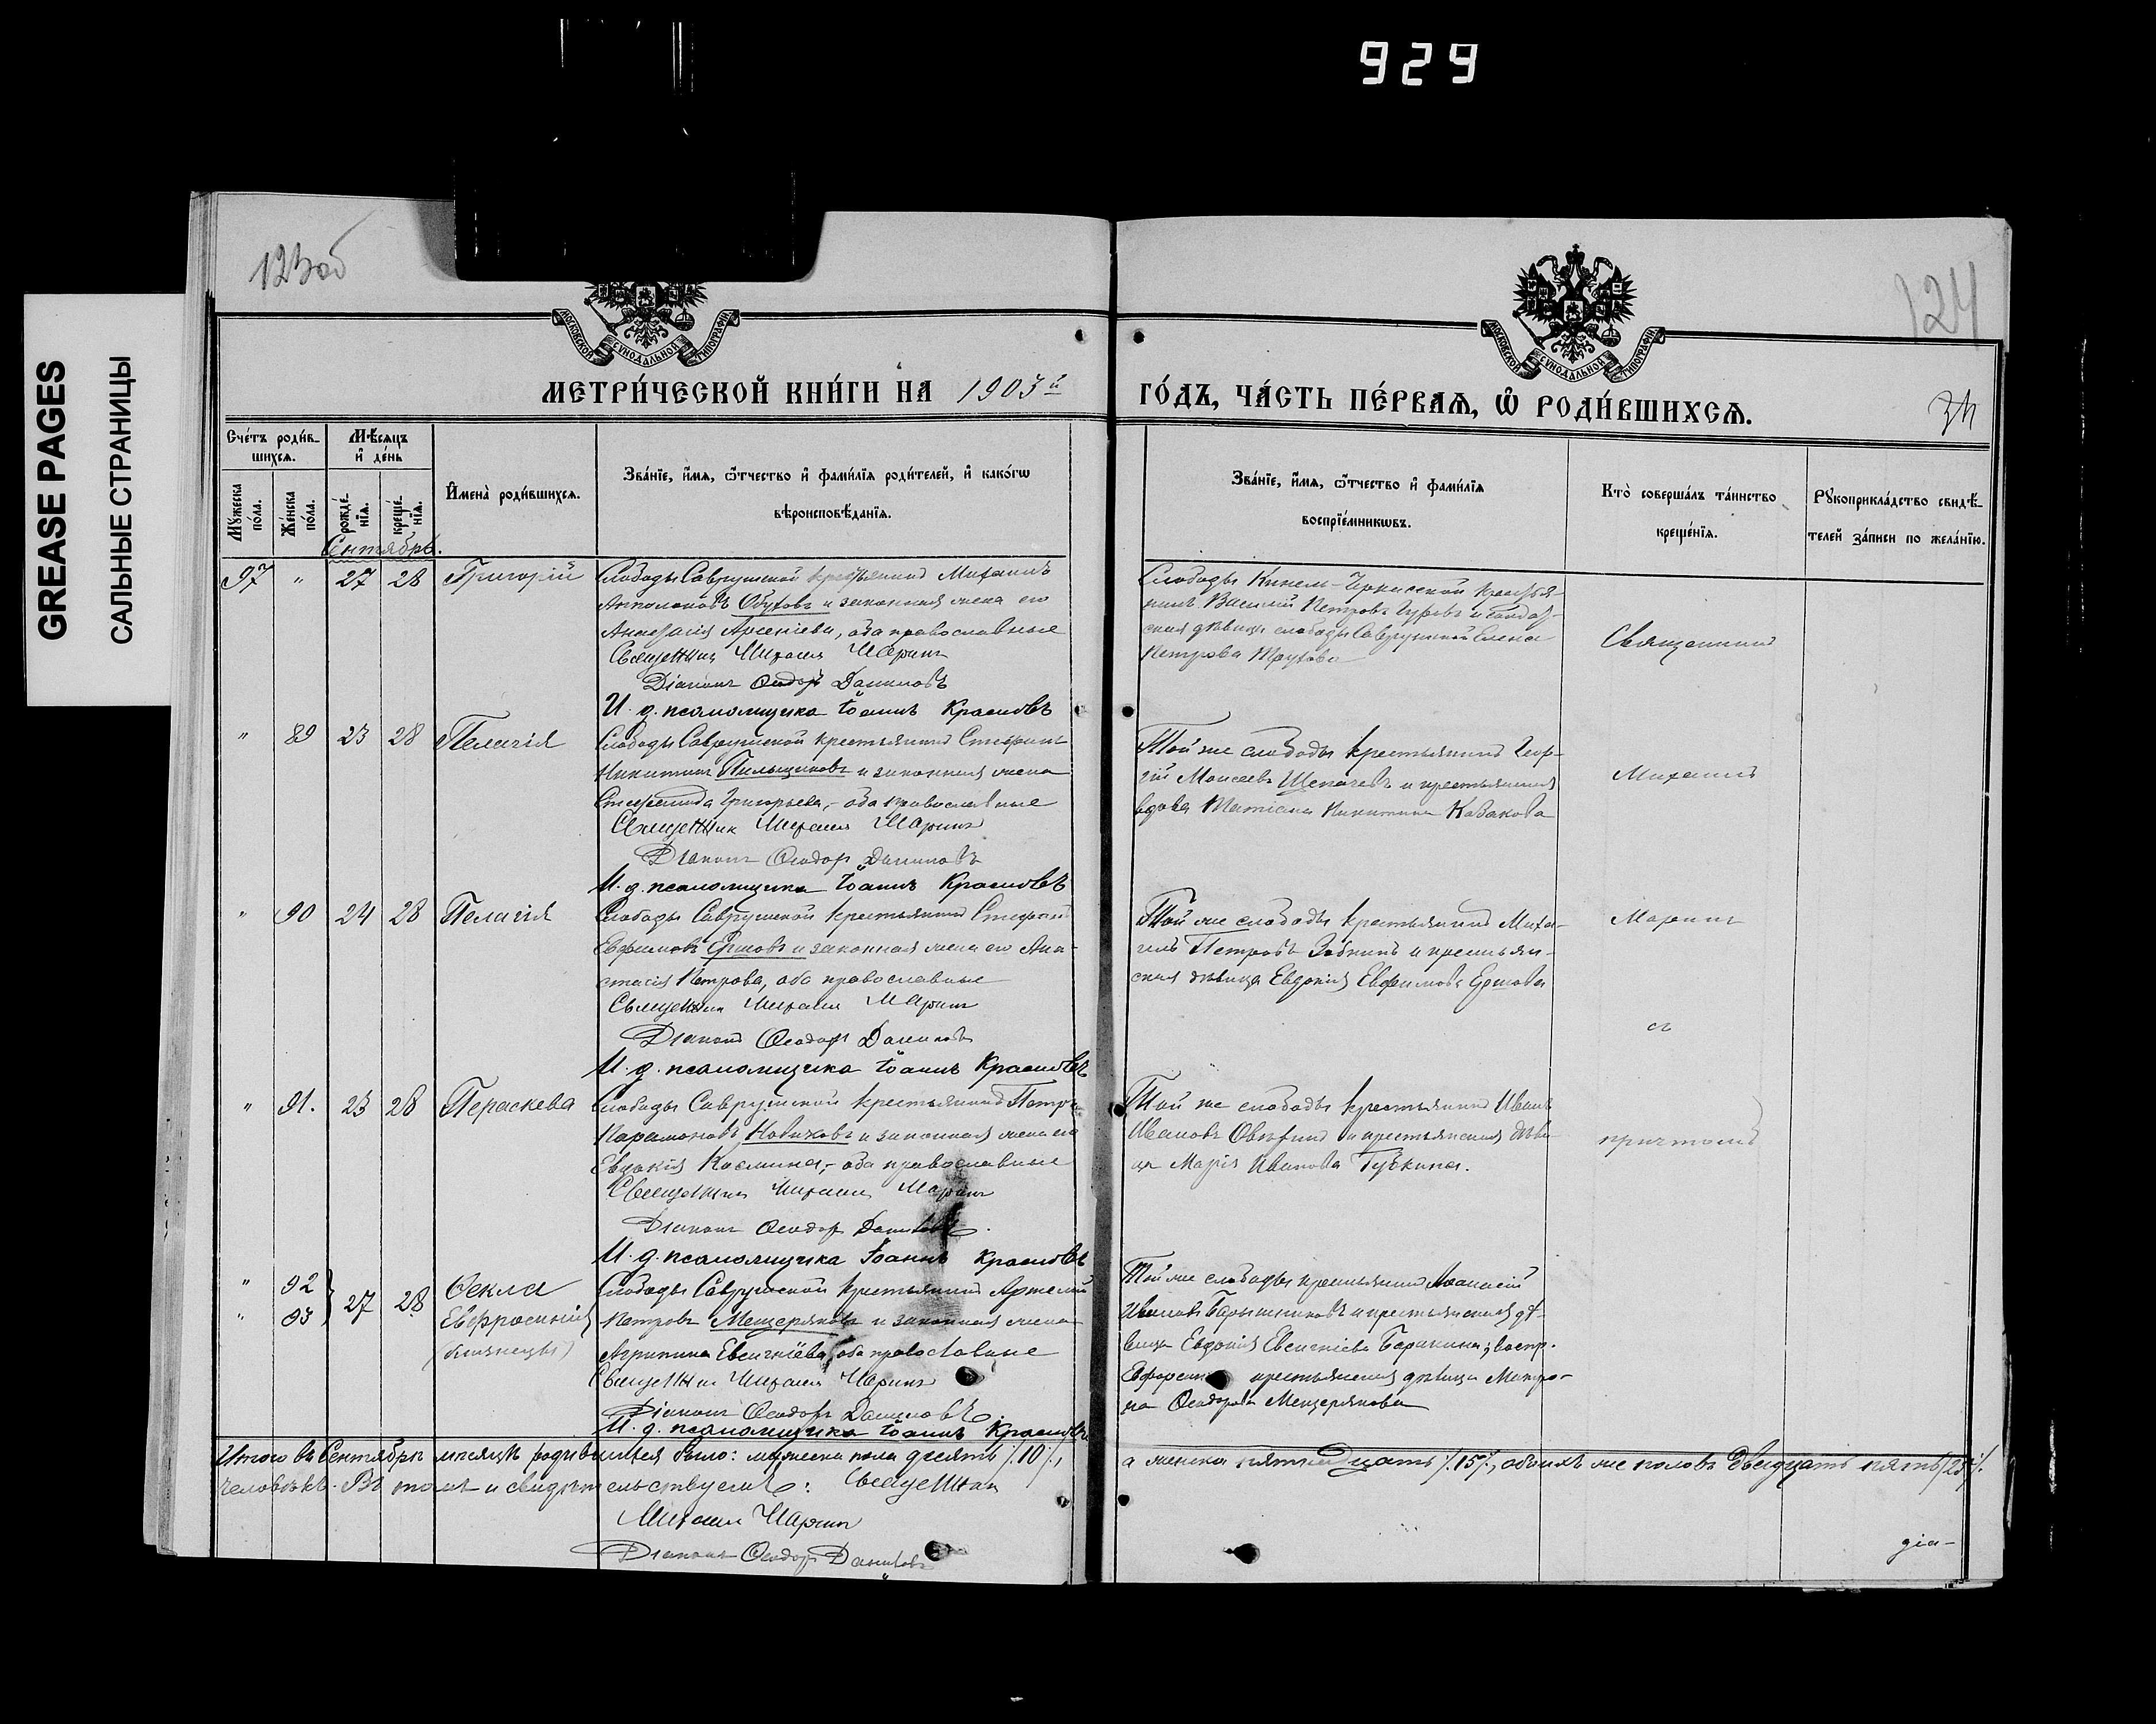 929
GREASE PAGES
САЛЬНЫЕ СТРАНИЦЫ
123об
124
34
МОСКОВСКОЙ СУНОДАЛЬНОЙ ТИПОГРАФІИ
МОСКОВСКОЙ СУНОДАЛЬНОЙ ТИПОГРАФІИ
МЕТРИ́ЧЕСКОЙ КНИ́ГИ НА 1903й ГО́ДЪ, ЧА́СТЬ ПЕ́РВАѦ, Ѡ҆ РОДИ́ВШИХСѦ.
Сче́тъ роди́в-
шихсѧ.
Мѣ́сяцъ
и҆ де́нь
Мꙋ́жеска
по́ла.
Же́нска
по́ла.
рожде́-
нїѧ.
креще́-
нїѧ.
И҆мена̀ роди́вшихсѧ.
Зва́нїе, и҆́мѧ, ѻ҆́тчество и҆ фами́лїѧ роди́телей, и҆ како́гѡ
вѣроисповѣ́данїѧ.
Зва́нїе, и҆́мѧ, ѻ҆́тчество и҆ фами́лїѧ
воспрїе́мникѡвъ.
Кто̀ соверша́лъ та́инство
креще́нїѧ.
Рꙋкоприкла́дство свидѣ́-
телей за́писи по жела́нїю.
Сентябрь.
97 " 27 28 Григорій
Слободы Саврушской крестьянинъ Михаилъ
Обуховъ и законная жена его
Анастасія Арсеніева, оба православные
Священникъ Михаилъ Маринъ
Діаконъ Ѳеодоръ Даниловъ
И. д. псаломщика Іоаннъ Красновъ
Слободы Кинель-Черкасской крестья-
нинъ Василій Петровъ Гуровъ и солдат-
ская дѣвица слободы Саврушской Елена
Петрова Трухова
Священникъ
" 89 23 28 Пелагія
Слободы Саврушской крестьянинъ Стефанъ
Никитинъ Пильщиковъ и законная жена
Степанида Григорьева, оба православные
Священникъ Михаилъ Маринъ
Діаконъ Ѳеодоръ Даниловъ
И. д. псаломщика Іоаннъ Красновъ
Той же слободы крестьянинъ Геор-
гій Моисеевъ Щепачевъ и крестьянская
вдова Татіана Никитина Казакова
Михаилъ
" 90 24 28 Пелагія
Слободы Саврушской крестьянинъ Стефанъ
Евфимовъ Ершовъ и законная жена его Ана-
стасія Петрова, оба православные
Священникъ Михаилъ Маринъ
Діаконъ Ѳеодоръ Даниловъ
И. д. псаломщика Іоаннъ Красновъ
Той же слободы крестьянинъ Миха-
илъ Петровъ Зобнинъ и крестьян-
ская дѣвица Евдокія Евфимова Ершова
Маринъ
съ
" 91. 23 28 Параскева
Слободы Саврушской крестьянинъ Петръ
Парамоновъ Новиковъ и законная жена его
Евдокія Космина, оба православные
Священникъ Михаилъ Маринъ
Діаконъ Ѳеодоръ Даниловъ.
И. д. псаломщика Іоаннъ Красновъ
Той же слободы крестьянинъ Иванъ
Ивановъ и крестьянская дѣви-
ца Марія Иванова Губкина.
причтомъ
" 92
" 93 } 27 28 Ѳекла
Евфросинія
(близнецы)
Слободы Саврушской крестьянинъ Артемій
Петровъ Мещеряковъ и законная жена
Агрипина Евсигніева, оба православные
Священникъ Михаилъ Маринъ
Діаконъ Ѳеодоръ Даниловъ.
И. д. псаломщика Іоаннъ Красновъ
Той же слободы крестьянинъ Аѳанасій
Ивановъ Барышниковъ и крестьянская дѣ-
вица Евдокія Евсигніева Баранина; воспр.
крестьянская дѣвица Матро-
на Ѳеодорова Мещерякова
Итого въ Сентябрѣ мѣсяцѣ родившихся было: мужеска пола десять /10/, а женска пятнадцать /15/, обоихъ же половъ двадцать пять /25/.
человѣкъ. Въ томъ и свидѣтельствуемъ: Священникъ
Михаилъ Маринъ
Діаконъ Ѳеодоръ Даниловъ
діа-